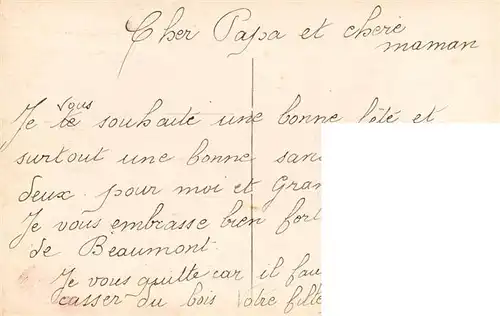 Cher Papa et chere
maman
vous
Je te souhaite une bonne fôté et
surtout une bonne san
deux pour moi et Gran
Je vous embrasse bien fort
de Beaumont.
Je vous quitte car il fau
casser du bois Votre fille